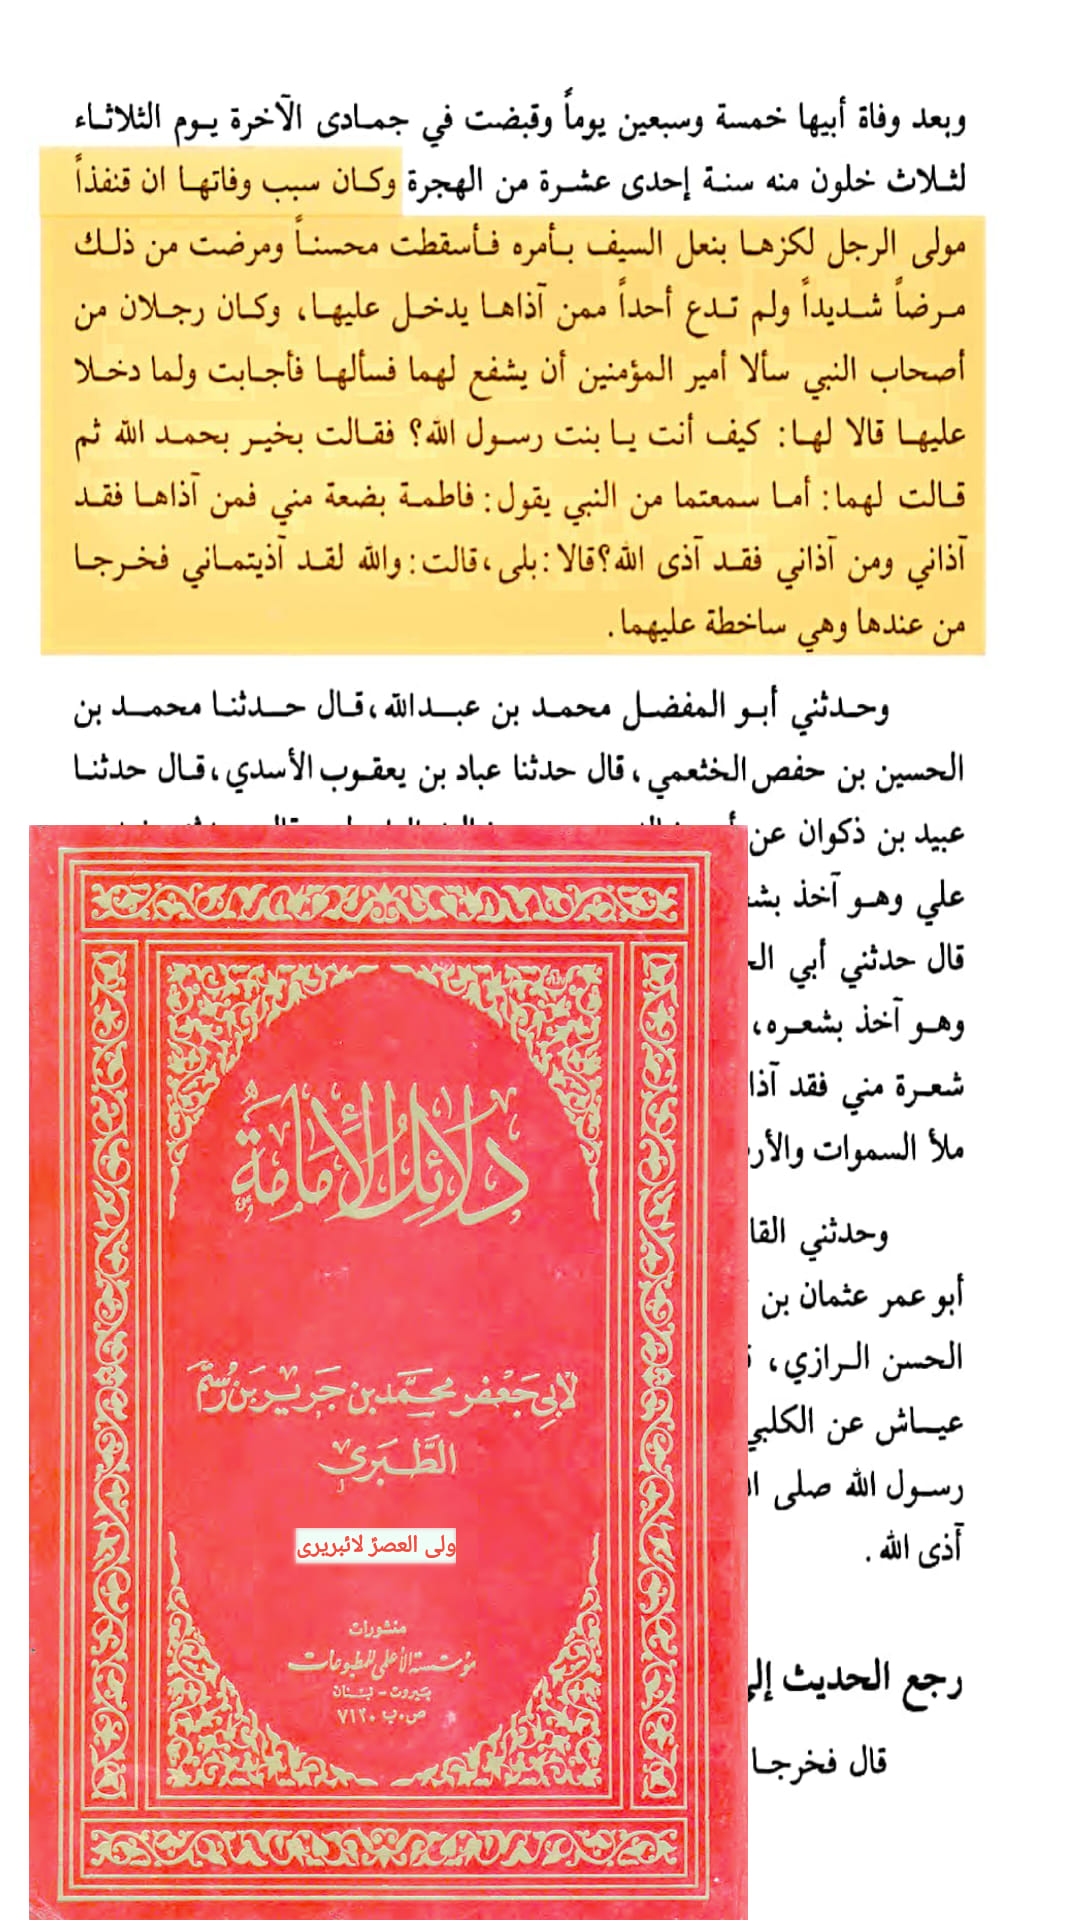 وبعد وفاة أبيها خمسة وسبعين يوماً وقبضت في جمادى الآخرة يوم الثلاثاء
لثلاث خلون منه سنة إحدى عشرة من الهجرة وكان سبب وفاتها ان قنفذاً
مولى الرجل لكزها بنعل السيف بأمره فأسقطت محسناً ومرضت من ذلك
مرضاً شديداً ولم تدع أحداً ممن آذاها يدخل عليها، وكان رجلان من
أصحاب النبي سألا أمير المؤمنين أن يشفع لهما فسألها فأجابت ولما دخلا
عليها قالا لها: كيف أنت يا بنت رسول الله؟ فقالت بخير بحمد الله ثم
قالت لهما: أما سمعتما من النبي يقول: فاطمة بضعة مني فمن آذاها فقد
آذاني ومن آذاني فقد آذى الله؟ قالا: بلى، قالت: والله لقد آذيتماني فخرجا
من عندها وهي ساخطة عليهما.
وحدثني أبو المفضل محمد بن عبدالله، قال حدثنا محمد بن
الحسين بن حفص الخثعمي، قال حدثنا عباد بن يعقوب الأسدي، قال حدثنا
عبيد بن ذكوان عن
علي وهو آخذ
قال حدثني أبي
وهو آخذ بشعره،
شعرة مني فقد
ملأ السموات
وحدثني
أبو عمر عثمان بن
الحسن الرازي،
عياش عن الكلبي
رسول الله صلى
آذى الله.
رجع الحديث إلى
قال فخرجا
دلائل الإمامة
لأبي جعفر محمد بن جرير بن رستم
الطبري
ولی العصرؑ لائبریری
منشورات
مؤسسة الأعلمي للمطبوعات
بيروت - لبنان
ص.ب ٧١٢٠